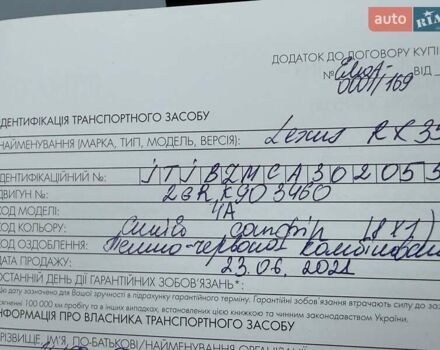 auto RIA
ДОДАТОК ДО ДОГОВОРУ КУПІ
№ 0001/169 ВІД
ДЕНТИФІКАЦІЯ ТРАНСПОРТНОГО ЗАСОБУ
НАЙМЕНУВАННЯ (МАРКА, ТИП, МОДЕЛЬ, ВЕРСІЯ): Lexus RX 35
ДЕНТИФІКАЦІЙНИЙ №: JTJBZMCA302055
ДВИГУН №: 2GR, K903460
КОД МОДЕЛІ: 4A
КОД КОЛЬОРУ: сапфір (8X1)
КОД ОЗДОБЛЕННЯ: Темно-червоної
ДАТА ПРОДАЖУ: 23.06.2021
ОСТАННІЙ ДЕНЬ ДІЇ ГАРАНТІЙНИХ ЗОБОВ'ЯЗАНЬ*:
цю дату зазначено для Вашої зручності в підрахунку гарантійного терміну. Гарантійні зобов'язання втрачають силу до за
сягненні 100 000 км пробігу та в інших випадках, встановлених цією книжкою та чинним законодавством України.
НФОРМАЦІЯ ПРО ВЛАСНИКА ТРАНСПОРТНОГО ЗАСОБУ
РІЗВИЩЕ, ІМ'Я, ПО-БАТЬКОВІ/НАЙМЕНУВАННЯ